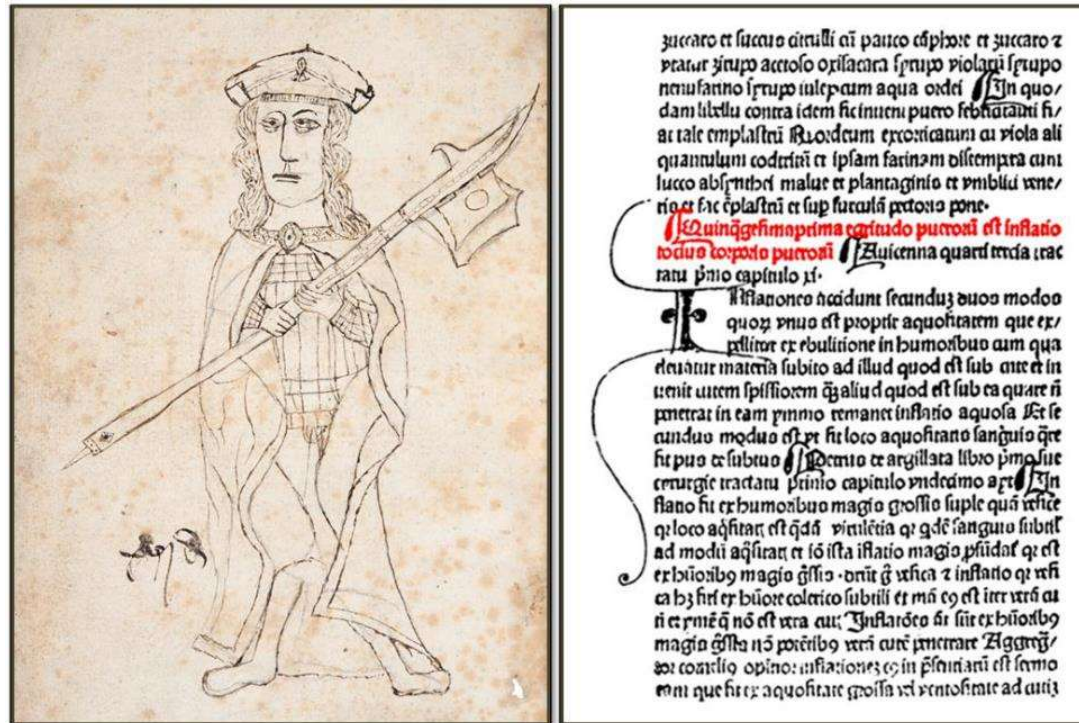 zuccaro et succus citrulli cū pauco cāphore et zuccaro ⁊
vtatur zirupo acetoso oxisacara syrupo violarū syrupo
nenufarino syrupo iulep cum aqua ordei In quo/
dam libellu contra idem sic inueni puero febricitanti fi/
at tale emplastrū Rordeum excorticatum cū viola ali
quantulum et ipsam farinam distempera cum
succo absynthei malue et plantaginis et vmbilici vene/
ris et fac ēplastrū et sup furculā pectoris pone.
Quinq̄gesimaprima egritudo puerorū est inflatio
totius corporis puerorū Auicenna quarti tercia trac
tatu p̄mo capitulo xi.
Inflationes accidunt secunduꝫ duos modos
quoꝝ vnus est propter aquositatem que ex/
pellitur ex ebulitione in humoribus cum qua
eleuatur materia subito ad illud quod est sub cute et in
uenit cutem spissiorem q̄ꝫ aliud quod est sub ea quare nō
penetrat in eam ymmo remanet inflatio aquosa Et se
cundus modus est vt sit loco aquositatis sanguis q̄re
fit pus de subtus Petrus de argillata libro p̄mo sue
cerurgie tractatu primo capitulo vndecimo In
flatio fit ex humoribus magis grossis suple quā vesice
qꝛ loco aq̄sitatꝭ est q̄dā virulētia qꝛ sanguis subtil
ad modū aq̄sitatꝭ et iō ista iflatio magis est
ex hūoribꝰ magis ḡssis. vesica ⁊ inflatio qꝛ vesi
ca ex hūore colerico subtili et est iter verā cu
ti et q nō est vera cutꝭ Inflatōes sūt ex hūoribꝰ
magis ḡssis nō verā cutē penetrare Aggreḡ/
inflationes in est sermo
eam que fit ex aquositate grossa vel ventositate ad cutiꝫ